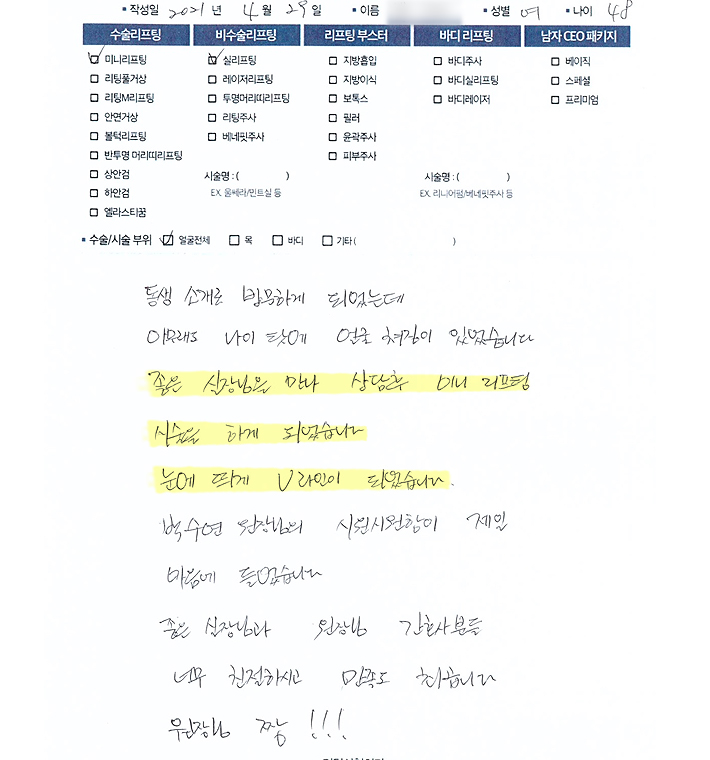 ▪ 작성일 2021 년 4 월 29 일 ▪ 이름 ▪ 성별 여 ▪ 나이 48
수술리프팅 비수술리프팅 리프팅 부스터 바디 리프팅 남자 CEO 패키지
☑ 미니리프팅 ☑ 실리프팅 □ 지방흡입 □ 바디주사 □ 베이직
□ 리팅풀거상 □ 레이저리프팅 □ 지방이식 □ 바디실리프팅 □ 스페셜
□ 리팅M리프팅 □ 투명머리띠리프팅 □ 보톡스 □ 바디레이저 □ 프리미엄
□ 안면거상 □ 리팅주사 □ 필러
□ 볼턱리프팅 □ 베네핏주사 □ 윤곽주사
□ 반투명 머리띠리프팅 □ 피부주사
□ 상안검 시술명 : ( ) 시술명 : ( )
□ 하안검 EX. 울쎄라/민트실 등 EX. 리니어펌/베네핏주사 등
□ 엘라스티꿈
▪ 수술/시술 부위 ☑ 얼굴전체 □ 목 □ 바디 □ 기타 ( )
동생 소개로 방문하게 되었는데
아무래도 나이 탓에 얼굴 처짐이 있었습니다
좋은 실장님을 만나 상담후 미니 리프팅
시술을 하게 되었습니다
눈에 띄게 V라인이 되었습니다.
백수연 원장님의 시원시원함이 제일
마음에 들었습니다
좋은 실장님과 원장님 간호사분들
너무 친절하시고 만족도 최고입니다
원장님 짱 !!!